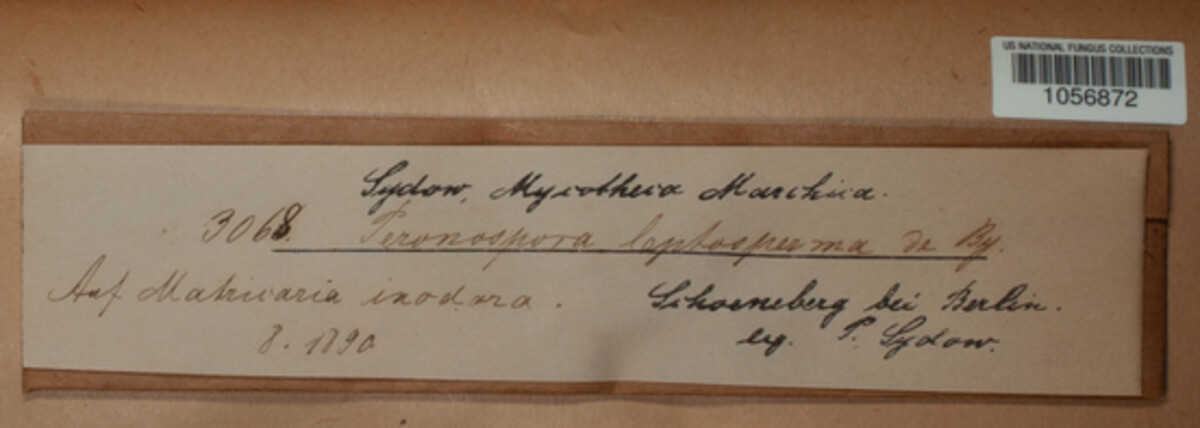 US NATIONAL FUNGUS COLLECTIONS
1056872
Sydow, Mycotheca Marchica.
3068. Peronospora leptosperma de By.
Auf Matricaria inodora. Schoeneberg bei Berlin.
8. 1890 leg. P. Sydow.